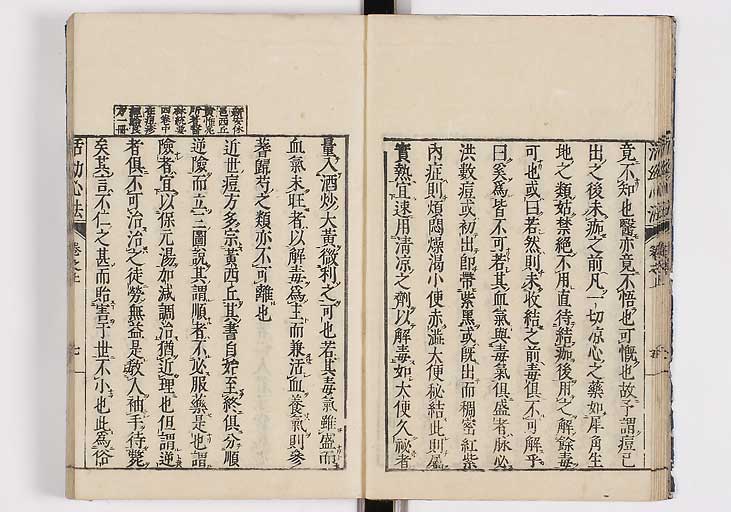 竟不知也醫亦竟不悟也可慨也故予謂痘已
出之後未痂之前凡一切凉心之藥如犀角生
地之類姑禁絕不用直待結痂後用之解餘毒
可也或曰若然則未收結之前毒俱不可解乎
曰奚爲皆不可若其血氣與毒氣俱盛者脉必
洪數痘或初出即帶紫黑或既出而稠密紅紫
內症則煩悶燥渴小便赤澁大便秘結此則屬
實熱宜速用清凉之劑以解毒如大便久祕者
量入酒炒大黃微利之可也若其毒氣雖盛而
血氣未旺者以解毒爲主而兼活血養氣則參
蓍歸芍之類亦不可離也
近世痘方多宗黃西丘其書自始至終俱分順
逆險而立三圖說其謂順者不必服藥是也謂
險者宜以保元湯加減調治猶近理也但謂逆
者俱不可治治之徒勞無益是敎人袖手待斃
矣其言不仁之甚而貽害于世不小也此爲俗
活幼心法
卷之上
七